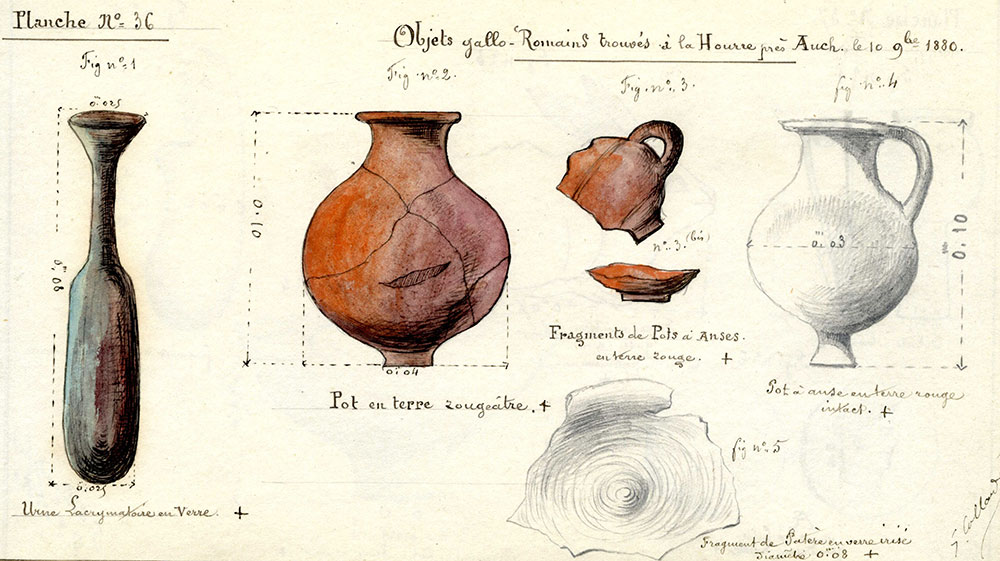 Planche Nº 36
Objets gallo-Romains trouvés à la Hourre près Auch. le 10 9bre 1880.
Fig nº 1
0m025
0m08
0m025
Urne Lacrymatoire en Verre. +
Fig. nº 2.
0.10
0m04
Pot en terre rougeâtre. +
Fig. nº 3.
nº 3. (bis)
Fragments de Pots à Anses.
en terre rouge. +
fig nº 4
0m03
0m10
Pot à anse en terre rouge
intact. +
fig nº 5
Fragment de Patère en verre irisé
Diamètre 0m08 +